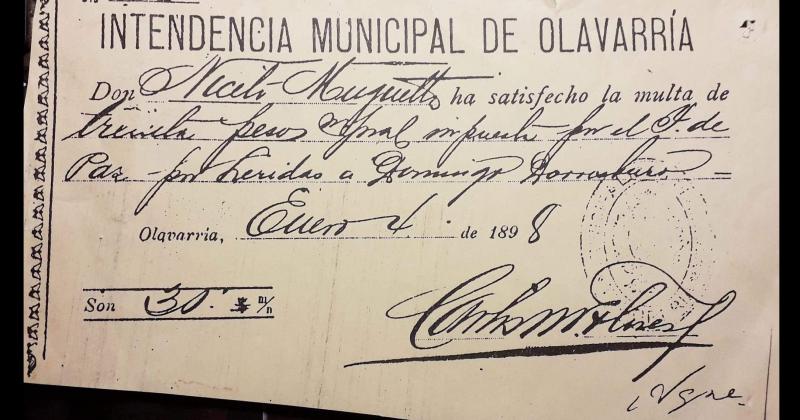 INTENDENCIA MUNICIPAL DE OLAVARRÍA
Don Niceto Muguetto ha satisfecho la multa de
treinta pesos m/nal impuesta por el J. de
Paz por heridas a Domingo
Olavarría, Enero 4 de 1898
Son 30 $ m/n